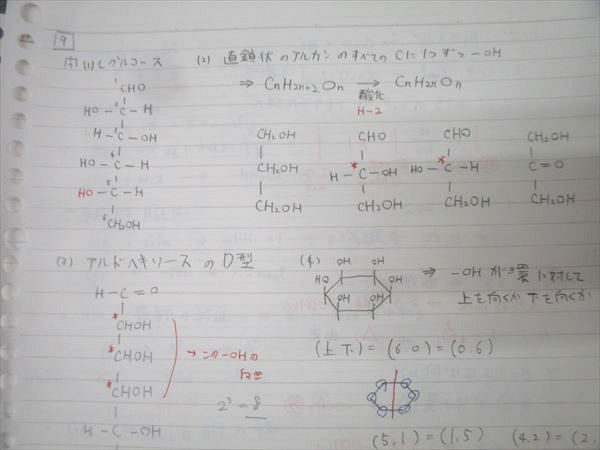 19
問 (1) L グルコース
CHO
HO - C - H
H - C - OH
HO - C - H
HO - C - H
CH₂OH
(2) 直鎖状のアルカンのすべてのCに1つずつ -OH
⇒ CnH2n+2On → CnH2nOn
酸化
H-2
CH₂OH CHO CHO CH₂OH
CH₂OH H - C - OH HO - C - H C = O
CH₂OH CH₂OH CH₂OH CH₂OH
(3) アルドヘキソースのD型
H - C = O
*CHOH
*CHOH
*CHOH
H - C - OH
→ この -OH の
向き
2³ = 8
(4)
OH OH
HO OH
OH OH
⇒ -OH が 環に対して
上を向くか下を向くか
(上下) = (6.0) = (0.6)
(5.1) = (1.5) (4.2) = (2.